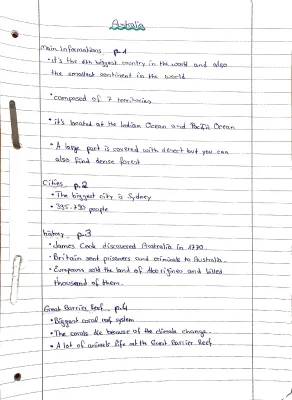 Australia
main informations p.1
• it's the 6th biggest country in the world and also
the smallest continent in the world
• composed of 7 territories
• it's located at the Indian Ocean and Pacific Ocean
• A large part is covered with desert but you can
also find dense forest
Cities p.2
• The biggest city is Sydney
• 395-790 people
history p.3
• James Cook discovered Australia in 1770.
• Britain sent prisoners and criminals to Australia.
• Europeans sold the land of Aborigines and killed
thousand of them.
Great Barrier Reef p.4
• Biggest coral reef system
• The corals die because of the climate change.
• A lot of animals life at the Great Barrier Reef